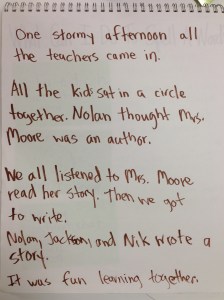 One stormy afternoon all
the teachers came in.
All the kids sat in a circle
together. Nolan thought Mrs.
Moore was an author.
We all listened to Mrs. Moore
read her story. Then we got
to write.
Nolan, Jackson, and Nik wrote a
story.
It was fun learning together.